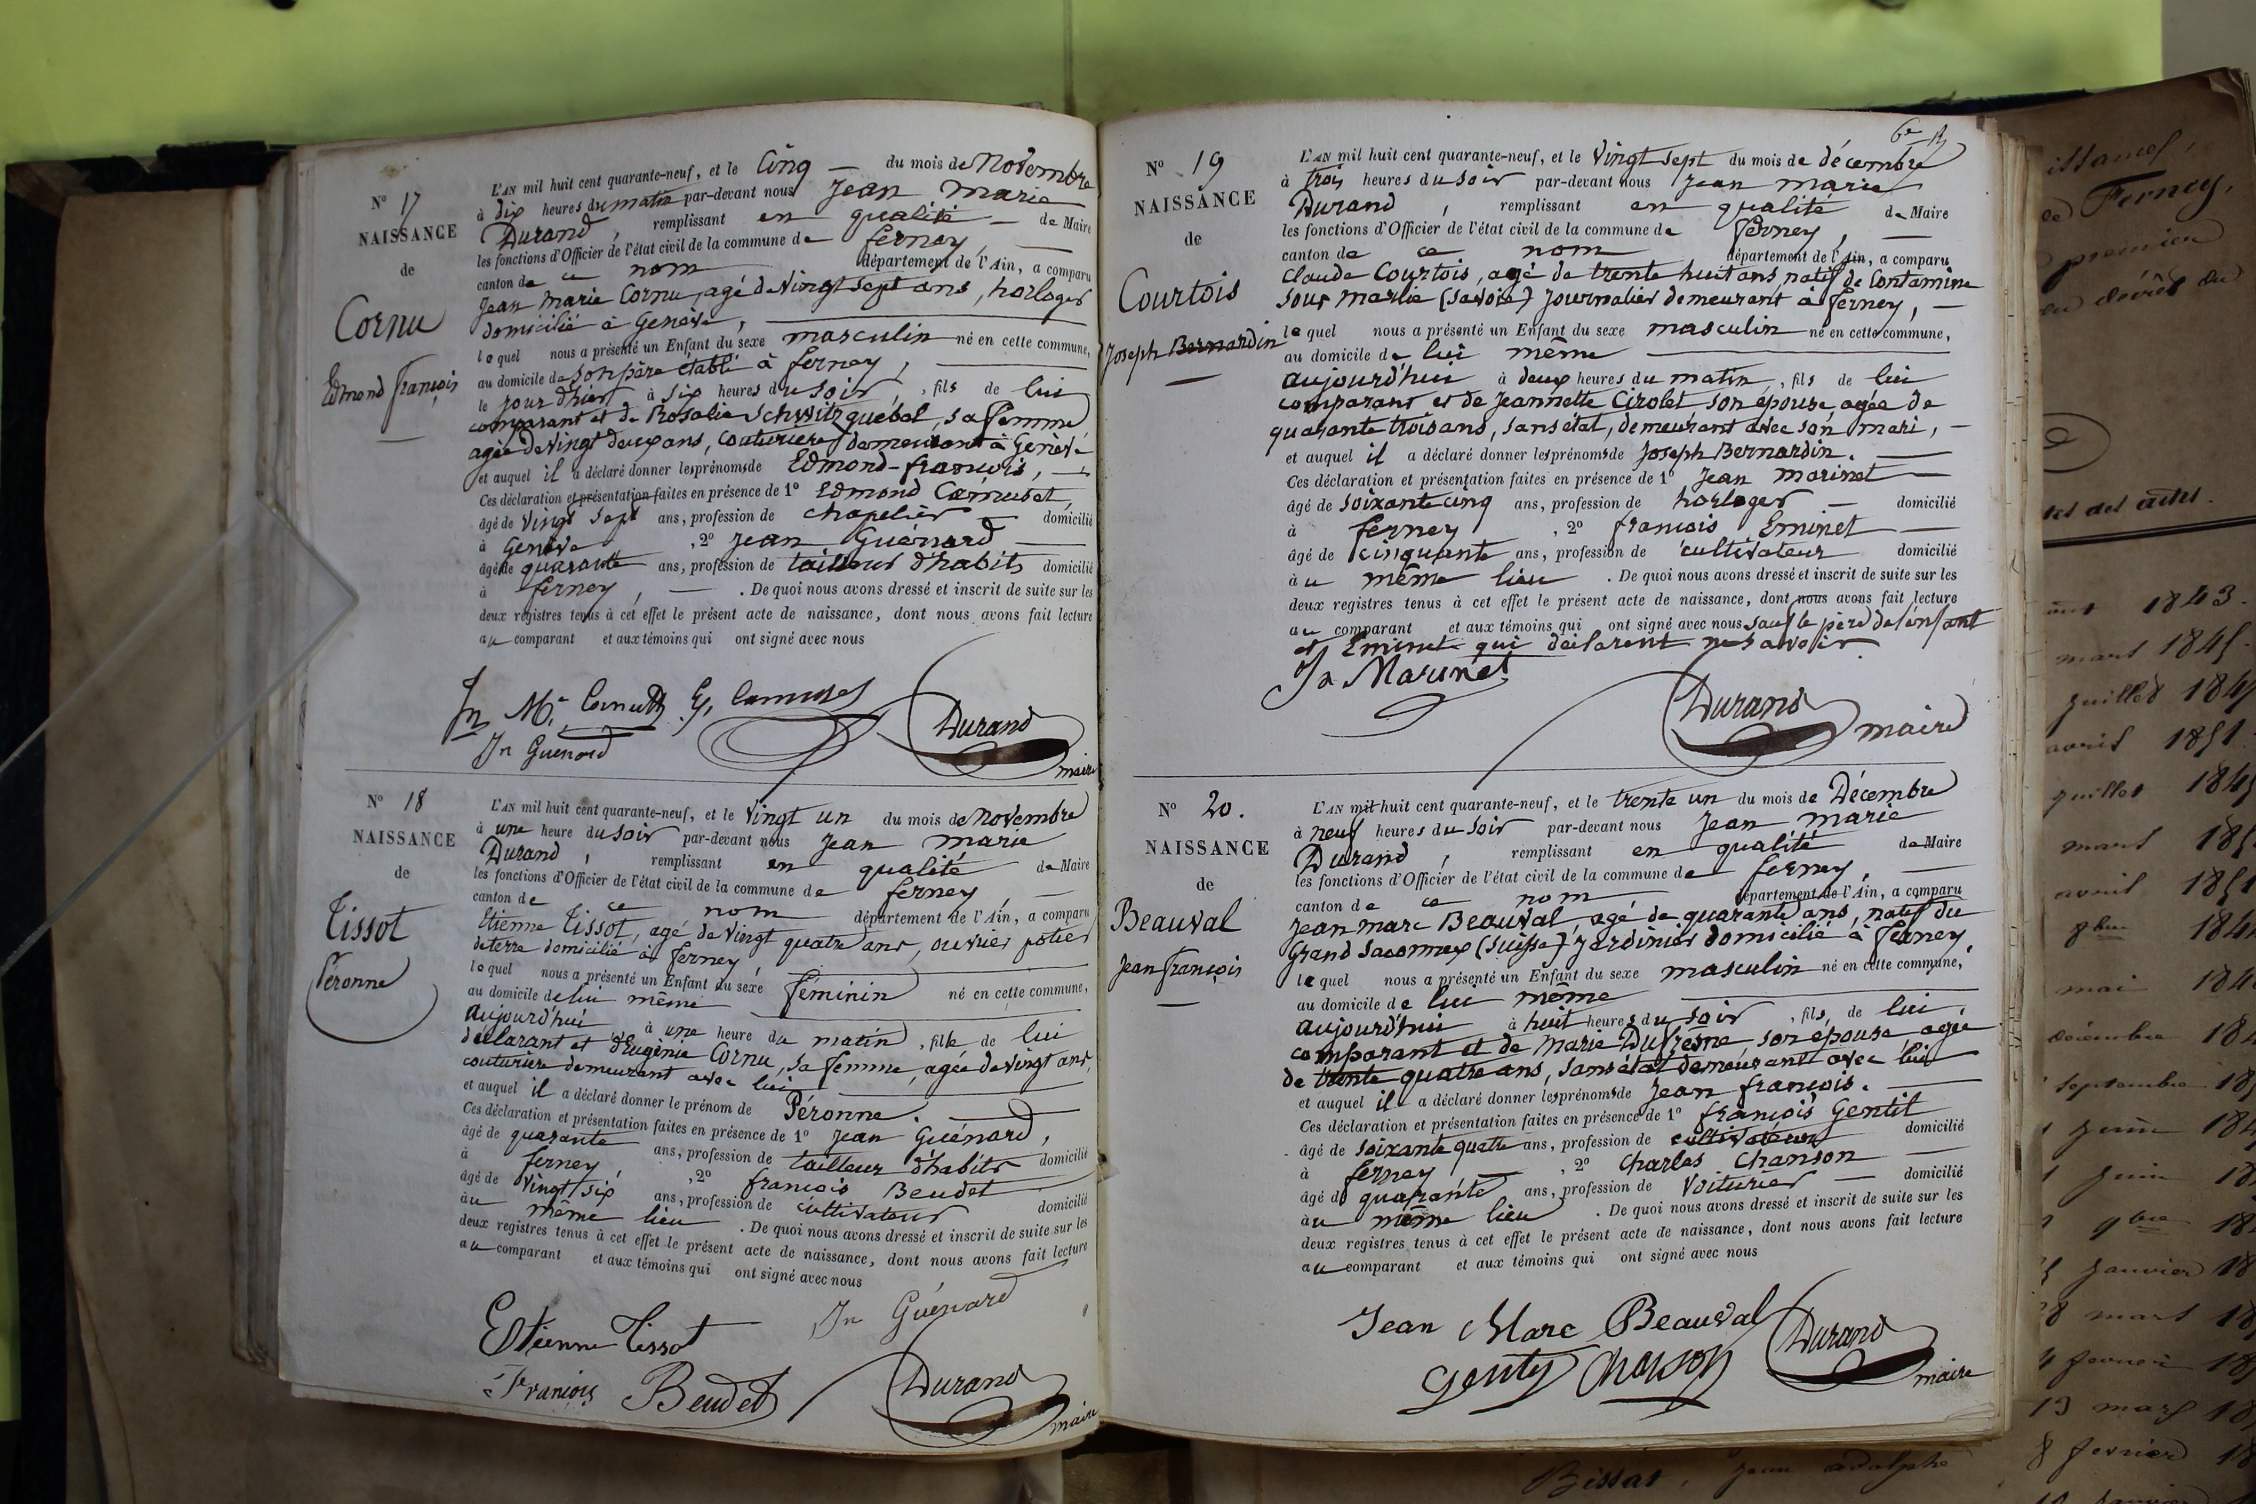 Nº 17
NAISSANCE
de
Cornu
Edmond François
L'AN mil huit cent quarante-neuf, et le Cinq du mois de Novembre
à dix heures du matin par-devant nous Jean Marie
Durand, remplissant en qualité de Maire
les fonctions d'Officier de l'état civil de la commune de ferney,
canton de ce nom département de l'Ain, a comparu
Jean Marie Cornu, agé de Vingt sept ans, horloger
domicilié à Genève,
lequel nous a présenté un Enfant du sexe masculin né en cette commune,
au domicile de son père établi à ferney,
le jour d'hier à six heures du soir, fils de lui
comparant et de Rosalie Schwitzguébel, sa femme
agée de Vingt deux ans, couturière demeurant à Genève
et auquel il a déclaré donner les prénoms de Edmond-françois,
Ces déclaration et présentation faites en présence de 1º Edmond Camuset,
âgé de Vingt sept ans, profession de chapelier domicilié
à Genève, 2º Jean Guénard
âgé de quarante ans, profession de tailleur d'habits domicilié
à ferney, . De quoi nous avons dressé et inscrit de suite sur les
deux registres tenus à cet effet le présent acte de naissance, dont nous avons fait lecture
au comparant et aux témoins qui ont signé avec nous
Jn Guenard
Durand
maire
Nº 18
NAISSANCE
de
Tissot
Péronne
L'AN mil huit cent quarante-neuf, et le Vingt un du mois de Novembre
à une heure du soir par-devant nous Jean Marie
Durand, remplissant en qualité de Maire
les fonctions d'Officier de l'état civil de la commune de ferney,
canton de ce nom département de l'Ain, a comparu
Etienne Tissot, agé de Vingt quatre ans, ouvrier potier
de terre domicilié à ferney,
lequel nous a présenté un Enfant du sexe féminin né en cette commune,
au domicile de lui même
aujourd'hui à une heure du matin, fille de lui
déclarant et d'Eugénie Cornu, sa femme, agée de Vingt ans,
couturière demeurant avec lui
et auquel il a déclaré donner le prénom de Péronne.
Ces déclaration et présentation faites en présence de 1º Jean Guénard,
âgé de quarante ans, profession de tailleur d'habits domicilié
à ferney, 2º françois Beudet
âgé de Vingt six ans, profession de cultivateur domicilié
au même lieu . De quoi nous avons dressé et inscrit de suite sur les
deux registres tenus à cet effet le présent acte de naissance, dont nous avons fait lecture
au comparant et aux témoins qui ont signé avec nous
Etienne Tissot Jn Guénard
François Beudet Durand
maire
Nº 19
NAISSANCE
de
Courtois
Joseph Bernardin
L'AN mil huit cent quarante-neuf, et le Vingt sept du mois de décembre
à trois heures du soir par-devant nous Jean Marie
Durand, remplissant en qualité de Maire
les fonctions d'Officier de l'état civil de la commune de ferney,
canton de ce nom département de l'Ain, a comparu
Claude Courtois, agé de trente huit ans, natif de Contamine
sous Marlie (Savoie) journalier demeurant à ferney,
lequel nous a présenté un Enfant du sexe masculin né en cette commune,
au domicile de lui même
aujourd'hui à deux heures du matin, fils de lui
comparant et de Jeannette Cirolet son épouse, agée de
quarante trois ans, sans état, demeurant avec son mari,
et auquel il a déclaré donner les prénoms de Joseph Bernardin.
Ces déclaration et présentation faites en présence de 1º Jean Marinet
âgé de soixante cinq ans, profession de horloger domicilié
à ferney, 2º françois Eminet
âgé de cinquante ans, profession de cultivateur domicilié
au même lieu . De quoi nous avons dressé et inscrit de suite sur les
deux registres tenus à cet effet le présent acte de naissance, dont nous avons fait lecture
au comparant et aux témoins qui ont signé avec nous sauf le père de l'enfant
et Eminet qui déclarent ne savoir
Jn Marinet
Durand maire
Nº 20.
NAISSANCE
de
Beauval
Jean françois
L'AN mil huit cent quarante-neuf, et le trente un du mois de Décembre
à neuf heures du soir par-devant nous Jean Marie
Durand, remplissant en qualité de Maire
les fonctions d'Officier de l'état civil de la commune de ferney,
canton de ce nom département de l'Ain, a comparu
Jean Marc Beauval, agé de quarante ans, natif du
Grand Saconnex (Suisse) jardinier domicilié à ferney,
lequel nous a présenté un Enfant du sexe masculin né en cette commune,
au domicile de lui même
aujourd'hui à huit heures du soir, fils de lui
comparant et de Marie Dufresne son épouse, agée
de trente quatre ans, sans état demeurant avec lui
et auquel il a déclaré donner les prénoms de Jean françois.
Ces déclaration et présentation faites en présence de 1º françois Gentil
âgé de soixante quatre ans, profession de cultivateur domicilié
à ferney, 2º Charles Chanson
âgé de quarante ans, profession de Voiturier domicilié
au même lieu . De quoi nous avons dressé et inscrit de suite sur les
deux registres tenus à cet effet le présent acte de naissance, dont nous avons fait lecture
au comparant et aux témoins qui ont signé avec nous
Jean Marc Beauval Durand
maire
Ferney,
1843.
mars 1845
avril 1851
mars
avril 1851
mai
décembre
septembre
juin
juin
9bre
janvier
mars
13 mars
8 fevrier
Bissat, Jean adolphe